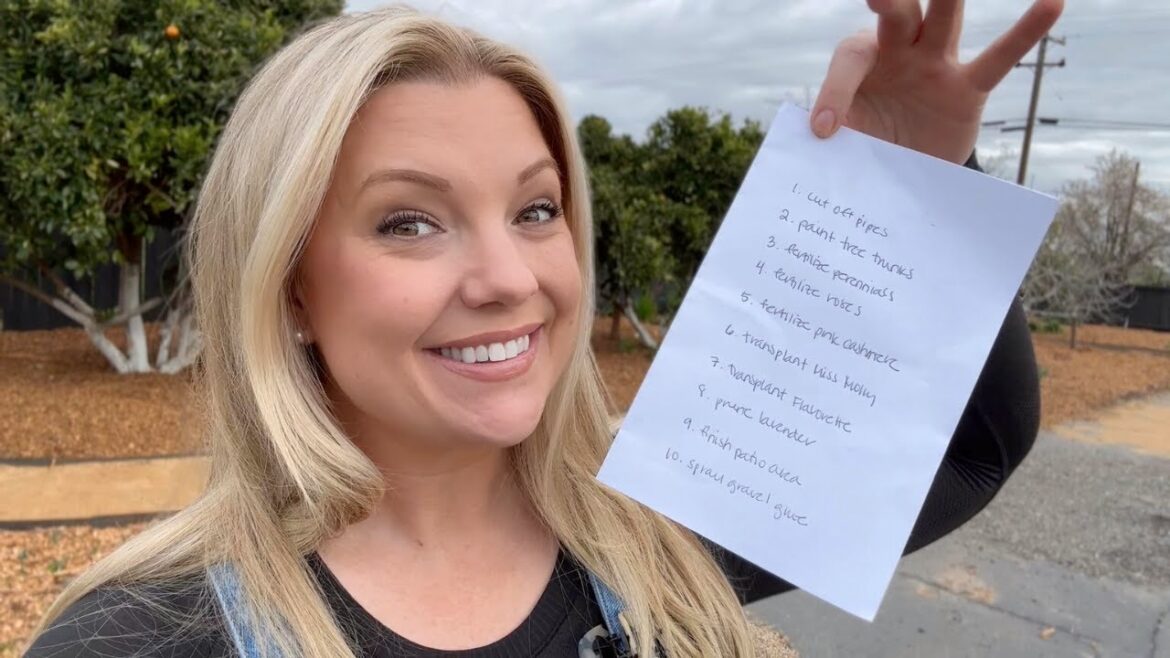 1. cut off pipes
2. paint tree trunks
3. fertilize perennials
4. fertilize roses
5. fertilize pink cashmere
6. transplant Miss Molly
7. Transplant Flavorette
8. prune lavender
9. finish patio area
10. spray gravel glue